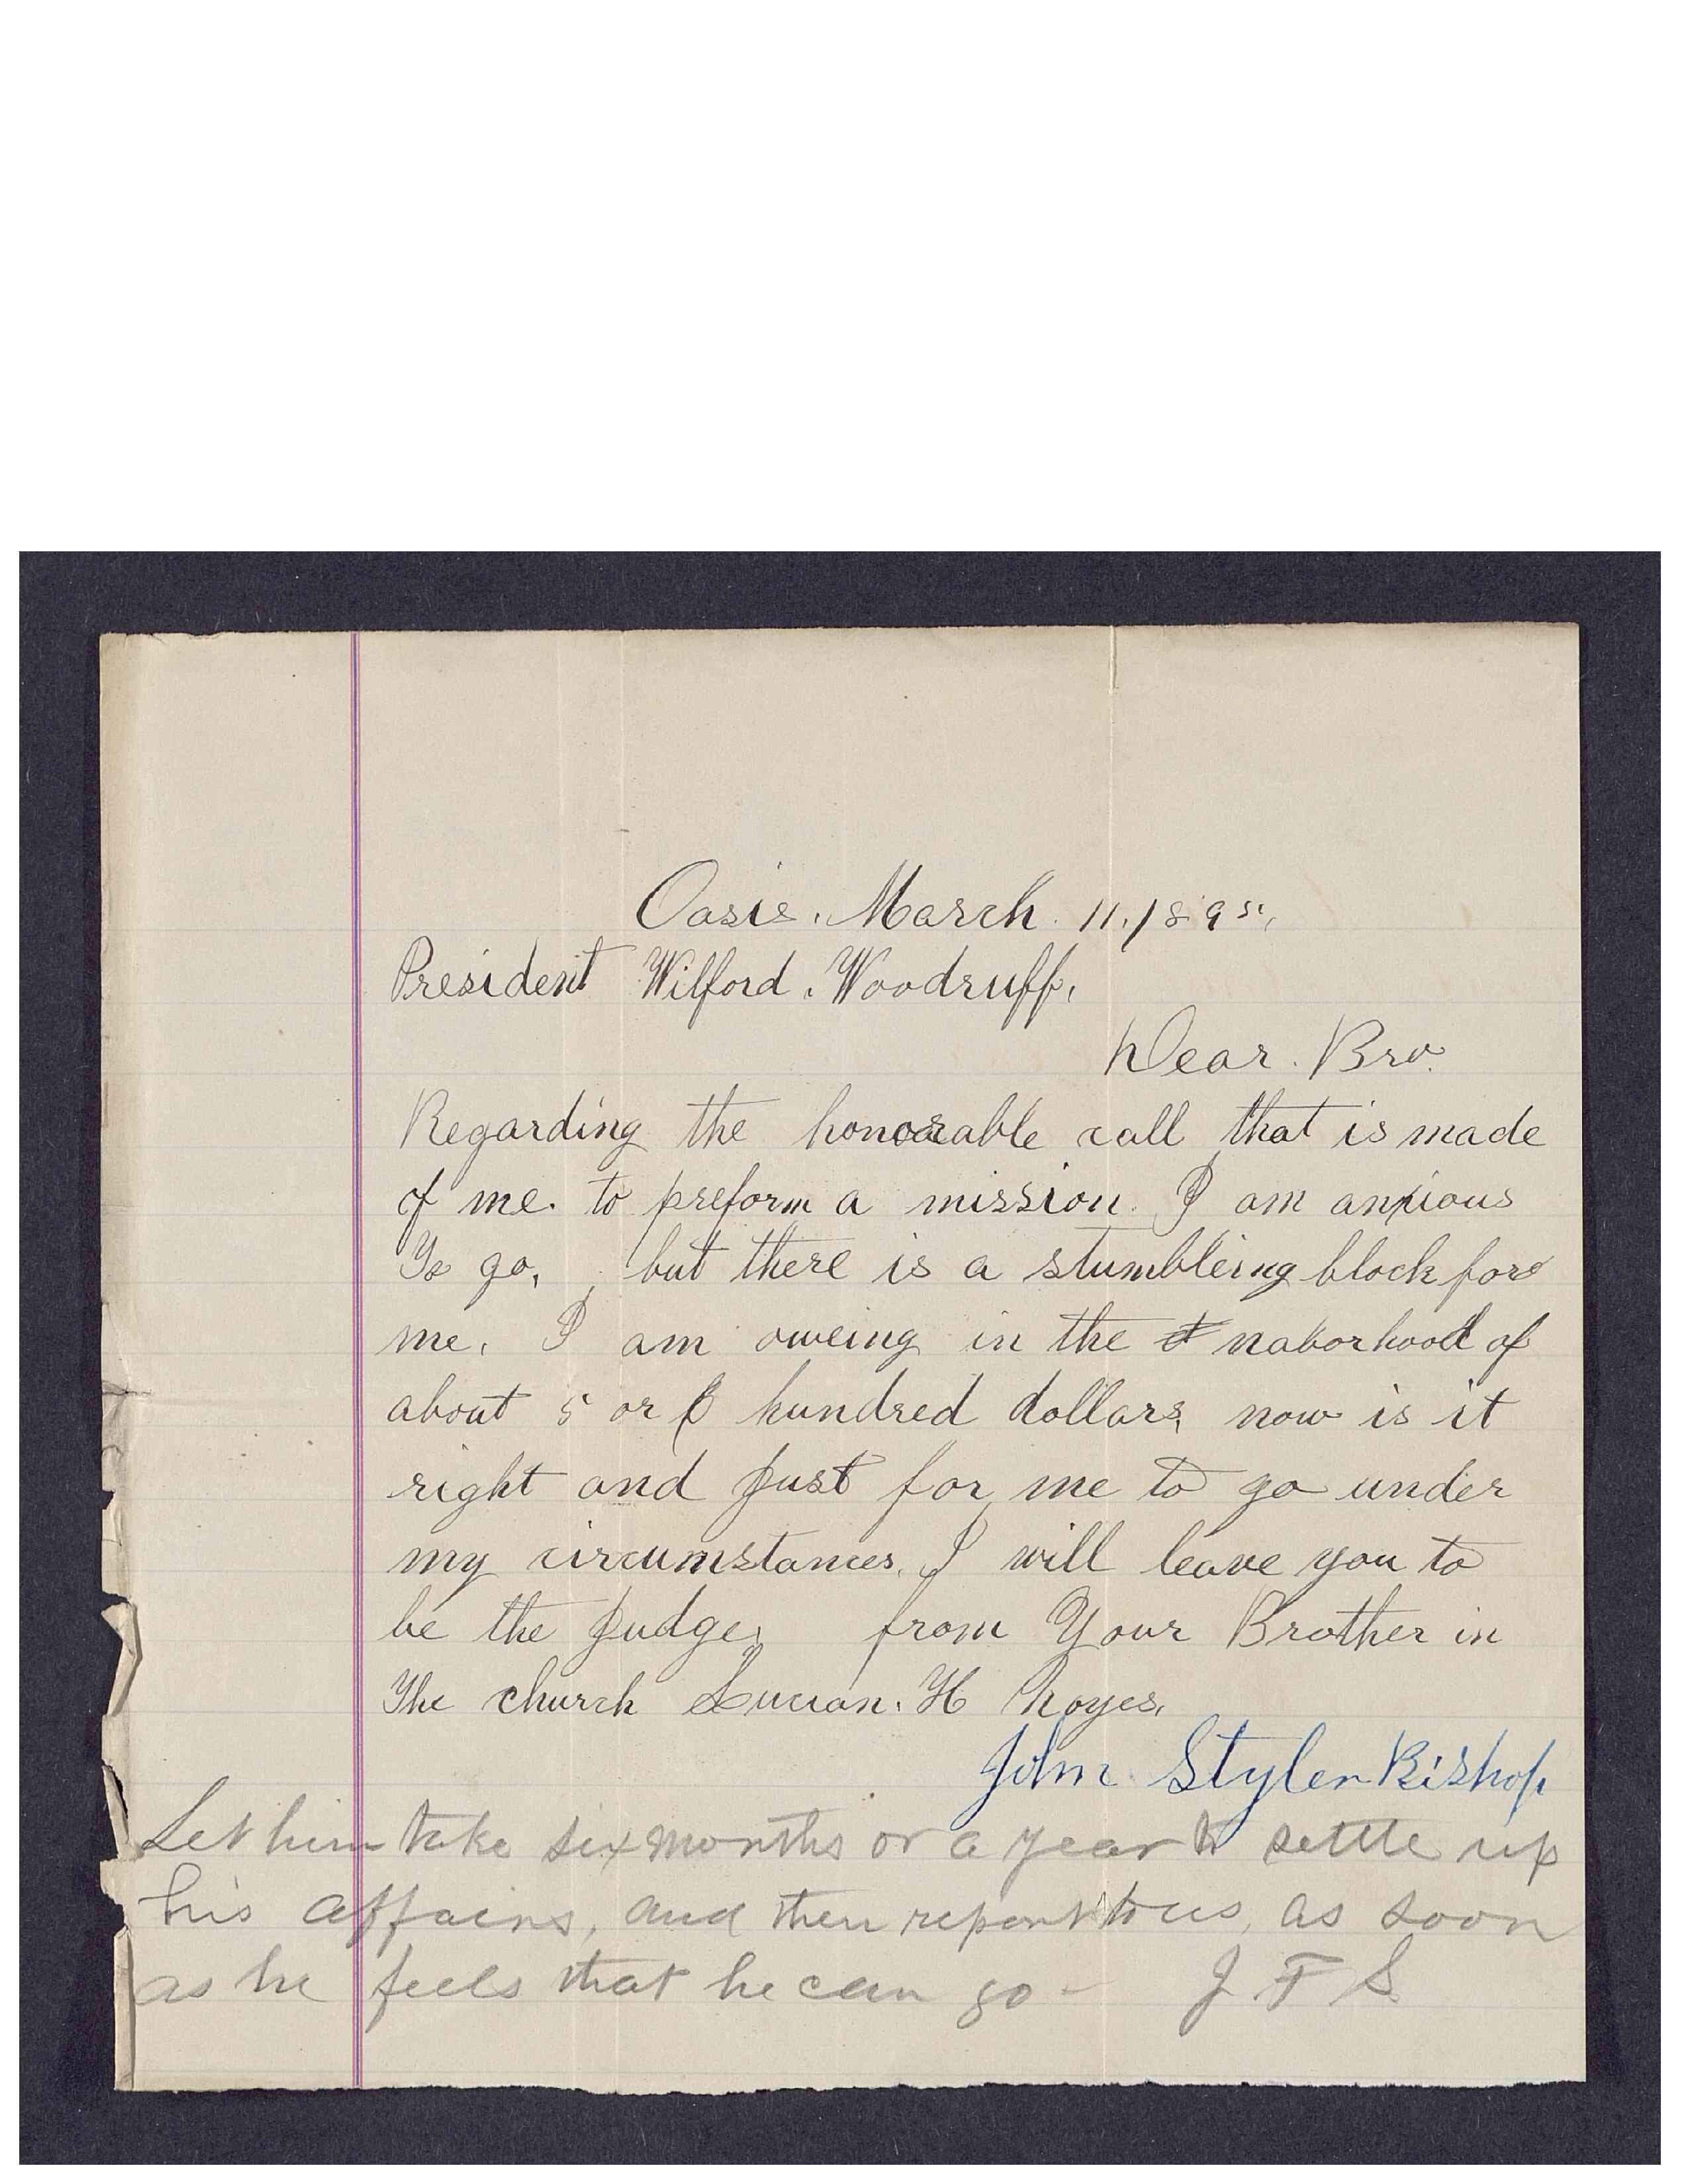 Oasis. March. 11. 1895,
President Wilford. Woodruff,
Dear. Bro.
Regarding the honorable call that is made
of me. to preform a mission. I am anxious
To go, but there is a stumbleing block for
me. I am oweing in the naborhood of
about 5 or 6 hundred dollars, now is it
right and just for me to go under
my circumstances. I will leave you to
be the judge, from Your Brother in
The church Lucian. H Noyes.
John Styler Bishop.
Let him take six months or a year to settle up
his affairs, and then report to us, as soon
as he feels that he can go - J F S